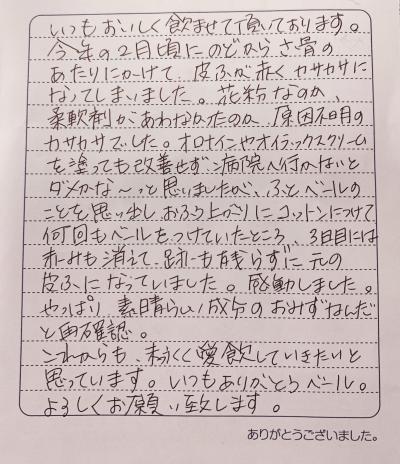 いつもおいしく飲ませて頂いております。
今年の2月頃にのどからさ骨の
あたりにかけて 皮ふが赤くカサカサに
なってしまいました。花粉なのか、
柔軟剤があわなかったのか 原因不明の
カサカサでした。オロナインやオイラックスクリーム
を塗っても改善せず 病院へ行かないと
ダメかな～っと思いましたが、ふとベールの
ことを思い出しおふろ上がりにコットンにつけて
何回もベールをつけていたところ、3日目には
赤みも消えて 跡にも残らずに元の
皮ふになっていました。感動しました。
やっぱり 素晴らしい成分のおみずなんだ
と再確認。
これからも、末ながく愛飲していきたいと
思っています。いつもありがとうベール。
よろしくお願い致します。
ありがとうございました。